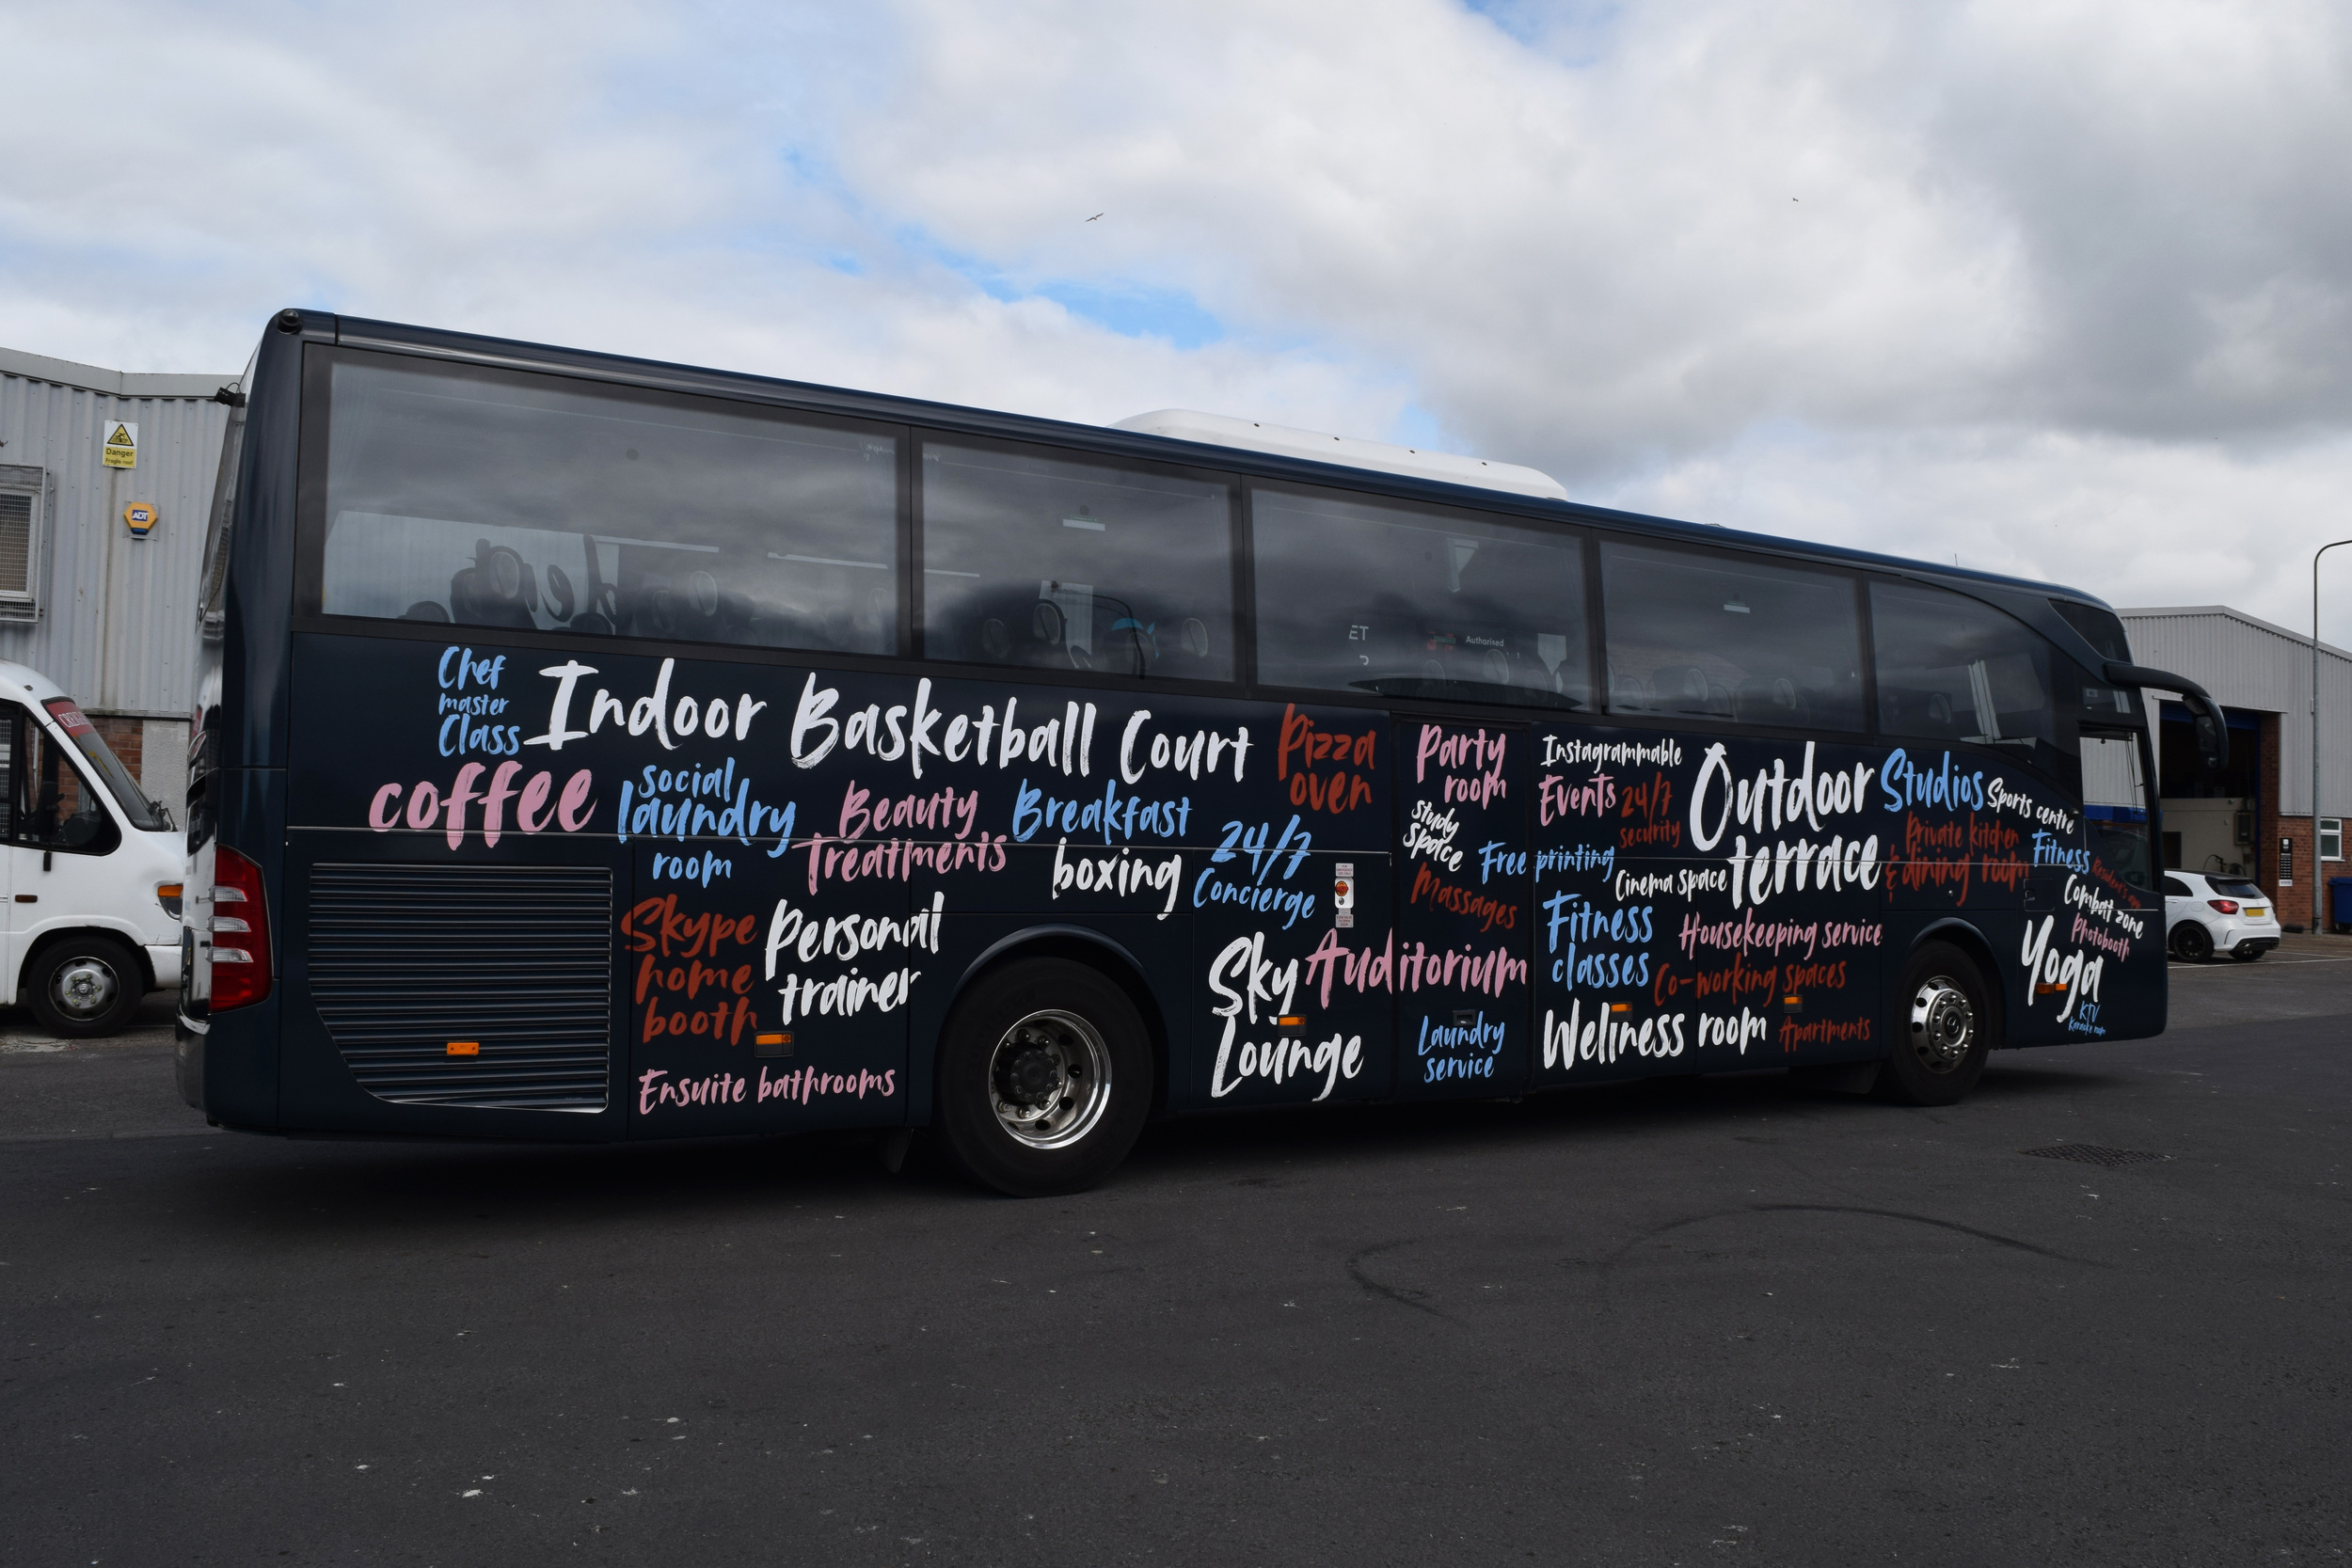 Danger
Fragile roof
ADT
ET
Authorised
Chef
master
Class
Indoor Basketball Court
Pizza
oven
coffee
social
laundry
room
Beauty
Treatments
Breakfast
boxing
24/7
Concierge
Skype
home
booth
Personal
trainer
Ensuite bathrooms
Sky
Lounge
Auditorium
Party
room
Study
Space
Free printing
Massages
Laundry
service
Instagrammable
Events
24/7
security
Cinema space
Outdoor
terrace
Fitness
classes
Housekeeping service
Co-working spaces
Wellness room
Apartments
Studios
Sports centre
Private kitchen
& dining room
Fitness
Combat zone
Photobooth
Yoga
KTV
Karaoke room